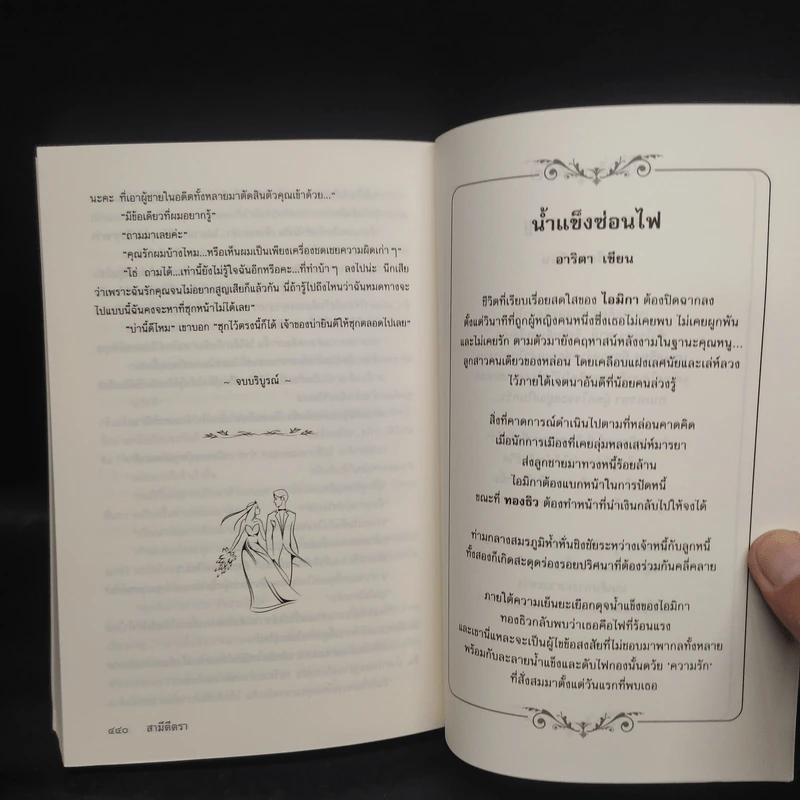 นะคะ ที่เอาผู้ชายในอดีตทั้งหลายมาตัดสินตัวคุณเข้าด้วย..."
"มีข้อเดียวที่ผมอยากรู้"
"ถามมาเลยค่ะ"
"คุณรักผมบ้างไหม...หรือเห็นผมเป็นเพียงเครื่องชดเชยความผิดเก่าๆ"
"โธ่ ถามได้...เท่านี้ยังไม่รู้ใจฉันอีกหรือคะ...ที่ทำบ้าๆ ลงไปน่ะ นึกเสีย
ว่าเพราะฉันรักคุณจนไม่อยากสูญเสียก็แล้วกัน นี่ถ้ารู้ไปถึงไหนว่าฉันหมดทางจะ
ไปแบบนี้ฉันคงจะหาที่ซุกหน้าไม่ได้เลย"
"บ่านี้ดีไหม" เขาบอก "ซุกไว้ตรงนี้ก็ได้ เจ้าของบ่ายินดีให้ซุกตลอดไปเลย"
~ จบบริบูรณ์ ~
๔๔๐ สามีตีตรา
น้ำแข็งซ่อนไฟ
อาริตา เขียน
ชีวิตที่เรียบเรื่อยสดใสของ ไอมิกา ต้องปิดฉากลง
ตั้งแต่วินาทีที่ถูกผู้หญิงคนหนึ่งซึ่งเธอไม่เคยพบ ไม่เคยผูกพัน
และไม่เคยรัก ตามตัวมายังคฤหาสน์หลังงามในฐานะคุณหนู...
ลูกสาวคนเดียวของหล่อน โดยเคลือบแฝงเลศนัยและเล่ห์ลวง
ไว้ภายใต้เจตนาอันดีที่น้อยคนล่วงรู้
สิ่งที่คาดการณ์ดำเนินไปตามที่หล่อนคาดคิด
เมื่อนักการเมืองที่เคยลุ่มหลงเสน่ห์มารยา
ส่งลูกชายมาทวงหนี้ร้อยล้าน
ไอมิกาต้องแบกหน้าในการปัดหนี้
ขณะที่ ทองธิว ต้องทำหน้าที่นำเงินกลับไปให้จงได้
ท่ามกลางสมรภูมิห้ำหั่นชิงชัยระหว่างเจ้าหนี้กับลูกหนี้
ทั้งสองก็เกิดสะดุดร่องรอยปริศนาที่ต้องร่วมกันคลี่คลาย
ภายใต้ความเย็นยะเยือกดุจน้ำแข็งของไอมิกา
ทองธิวกลับพบว่าเธอคือไฟที่ร้อนแรง
และเขานี่แหละจะเป็นผู้ไขข้อสงสัยที่ไม่ชอบมาพากลทั้งหลาย
พร้อมกับละลายน้ำแข็งและดับไฟกองนั้นด้วย 'ความรัก'
ที่สั่งสมมาตั้งแต่วันแรกที่พบเธอ